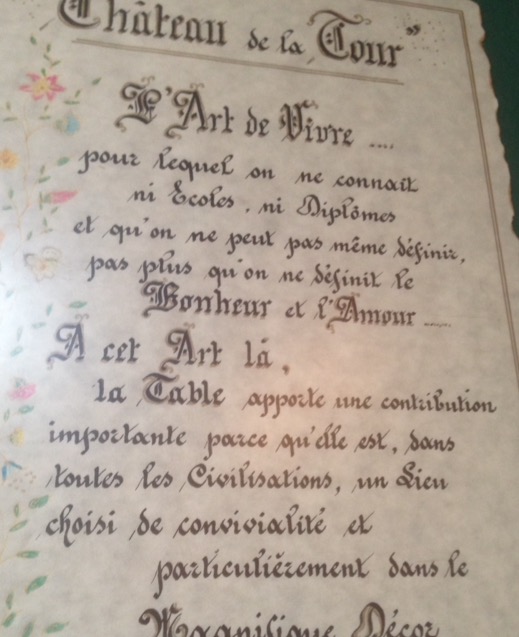 Château de la Tour"
L'Art de Vivre ....
pour lequel on ne connait
ni Ecoles, ni Diplômes
et qu'on ne peut pas même définir,
pas plus qu'on ne définit le
Bonheur et l'Amour ......
A cet Art là,
la Table apporte une contribution
importante parce qu'elle est, dans
toutes les Civilisations, un Lieu
choisi de convivialité et
particulièrement dans le
Magnifique Décor